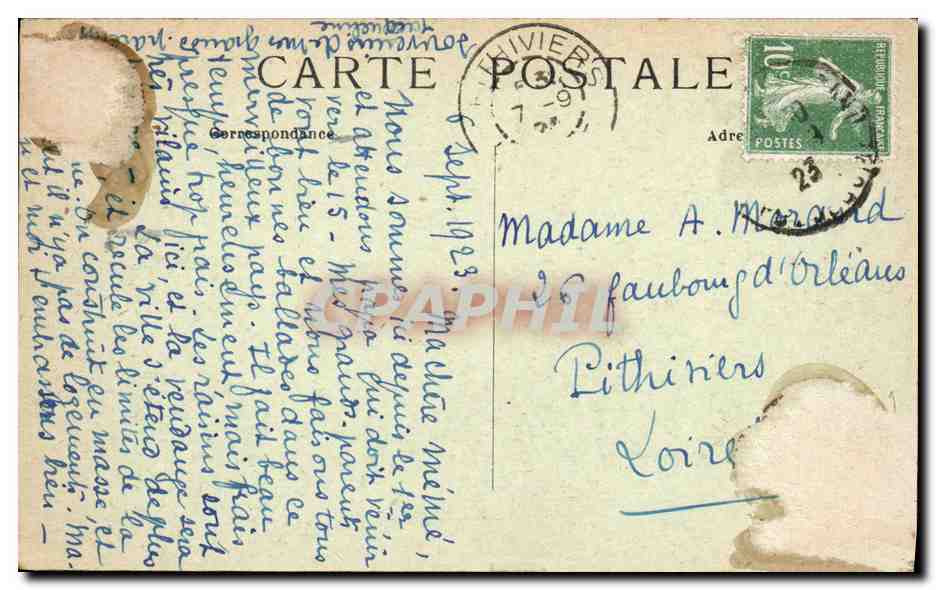 CARTE POSTALE
Correspondance
Adre
PITHIVIERS
7 -9
23
10c
REPUBLIQUE FRANCAISE
POSTES
6 Sept. 1923. Ma chère mémé,
Nous sommes ici depuis le 1er
et attendons papa qui doit venir
vers le 15 - Mes grands-parents
vont bien et nous faisons tous
de bonnes ballades dans ce
merveilleux pays. Il fait beau
temps, heureusement, mais frais
presque trop frais. Les raisins sont
ici, et la vendange sera
La ville s'étend de plus
et recule les limites de la
On construit en masse, et
il n'y a pas de logements. Ma-
et moi t'embrassons bien -
Souvenirs de mes grands-parents
Jacqueline
Madame A. Marand
26 faubourg d'Orléans
Pithiviers
Loire
CPAPHIL